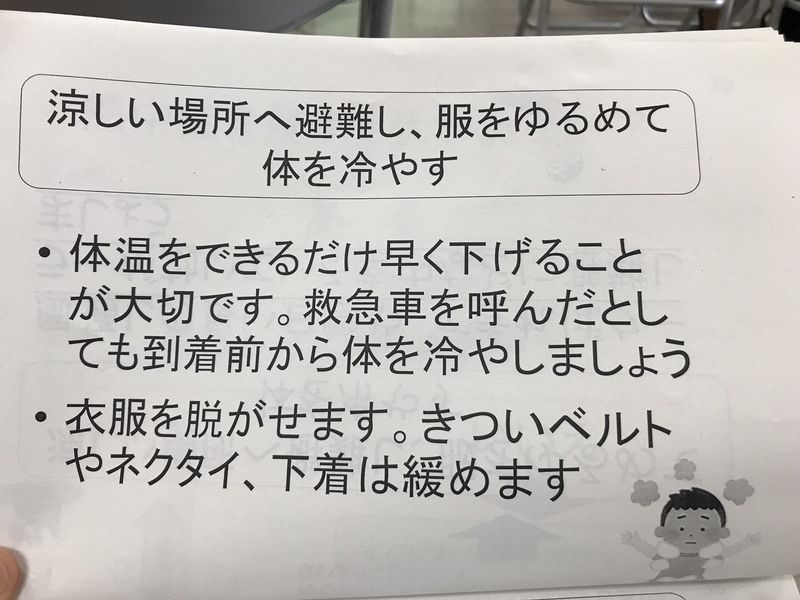 涼しい場所へ避難し、服をゆるめて
体を冷やす
・体温をできるだけ早く下げること
が大切です。救急車を呼んだとし
ても到着前から体を冷やしましょう
・衣服を脱がせます。きついベルト
やネクタイ、下着は緩めます